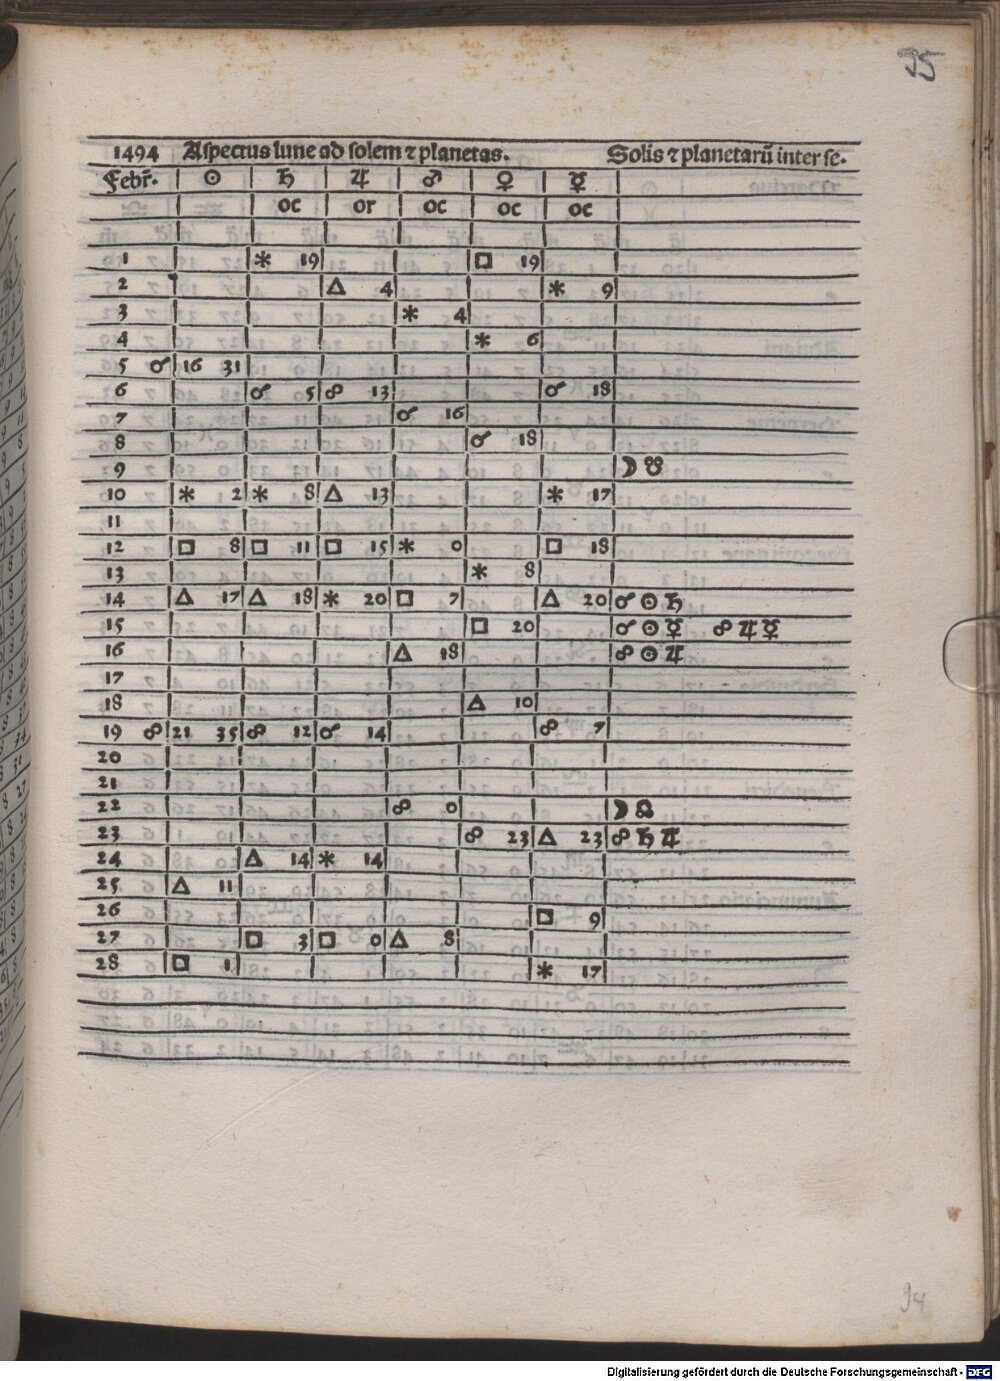 35
1494 Aspectus lune ad solem ⁊ planetas. Solis ⁊ planetarū inter se.
Febr̄. ☉ ♄ ♃ ♂ ♀ ☿
oc or oc oc oc
1 ⚹ 19 □ 19
2 △ 4 ⚹ 9
3 ⚹ 4
4 ⚹ 6
5 ☌ 16 31
6 ☌ 5 ☍ 13 ☌ 18
7 ☌ 16
8 ☌ 18
9 ☽ ☋
10 ⚹ 2 ⚹ 8 △ 13 ⚹ 17
11
12 □ 8 □ 11 □ 15 ⚹ 0 □ 18
13 ⚹ 8
14 △ 17 △ 18 ⚹ 20 □ 7 △ 20 ☌ ☉ ♄
15 □ 20 ☌ ☉ ☿ ☍ ♃ ☿
16 △ 18 ☍ ☉ ♃
17
18 △ 10
19 ☍ 21 35 ☍ 12 ☌ 14 ☍ 7
20
21
22 ☍ 0 ☽ ☊
23 ☍ 23 △ 23 ☍ ♄ ♃
24 △ 14 ⚹ 14
25 △ 11
26 □ 9
27 □ 3 □ 0 △ 8
28 □ 1 ⚹ 17
94
Digitalisierung gefördert durch die Deutsche Forschungsgemeinschaft - DFG